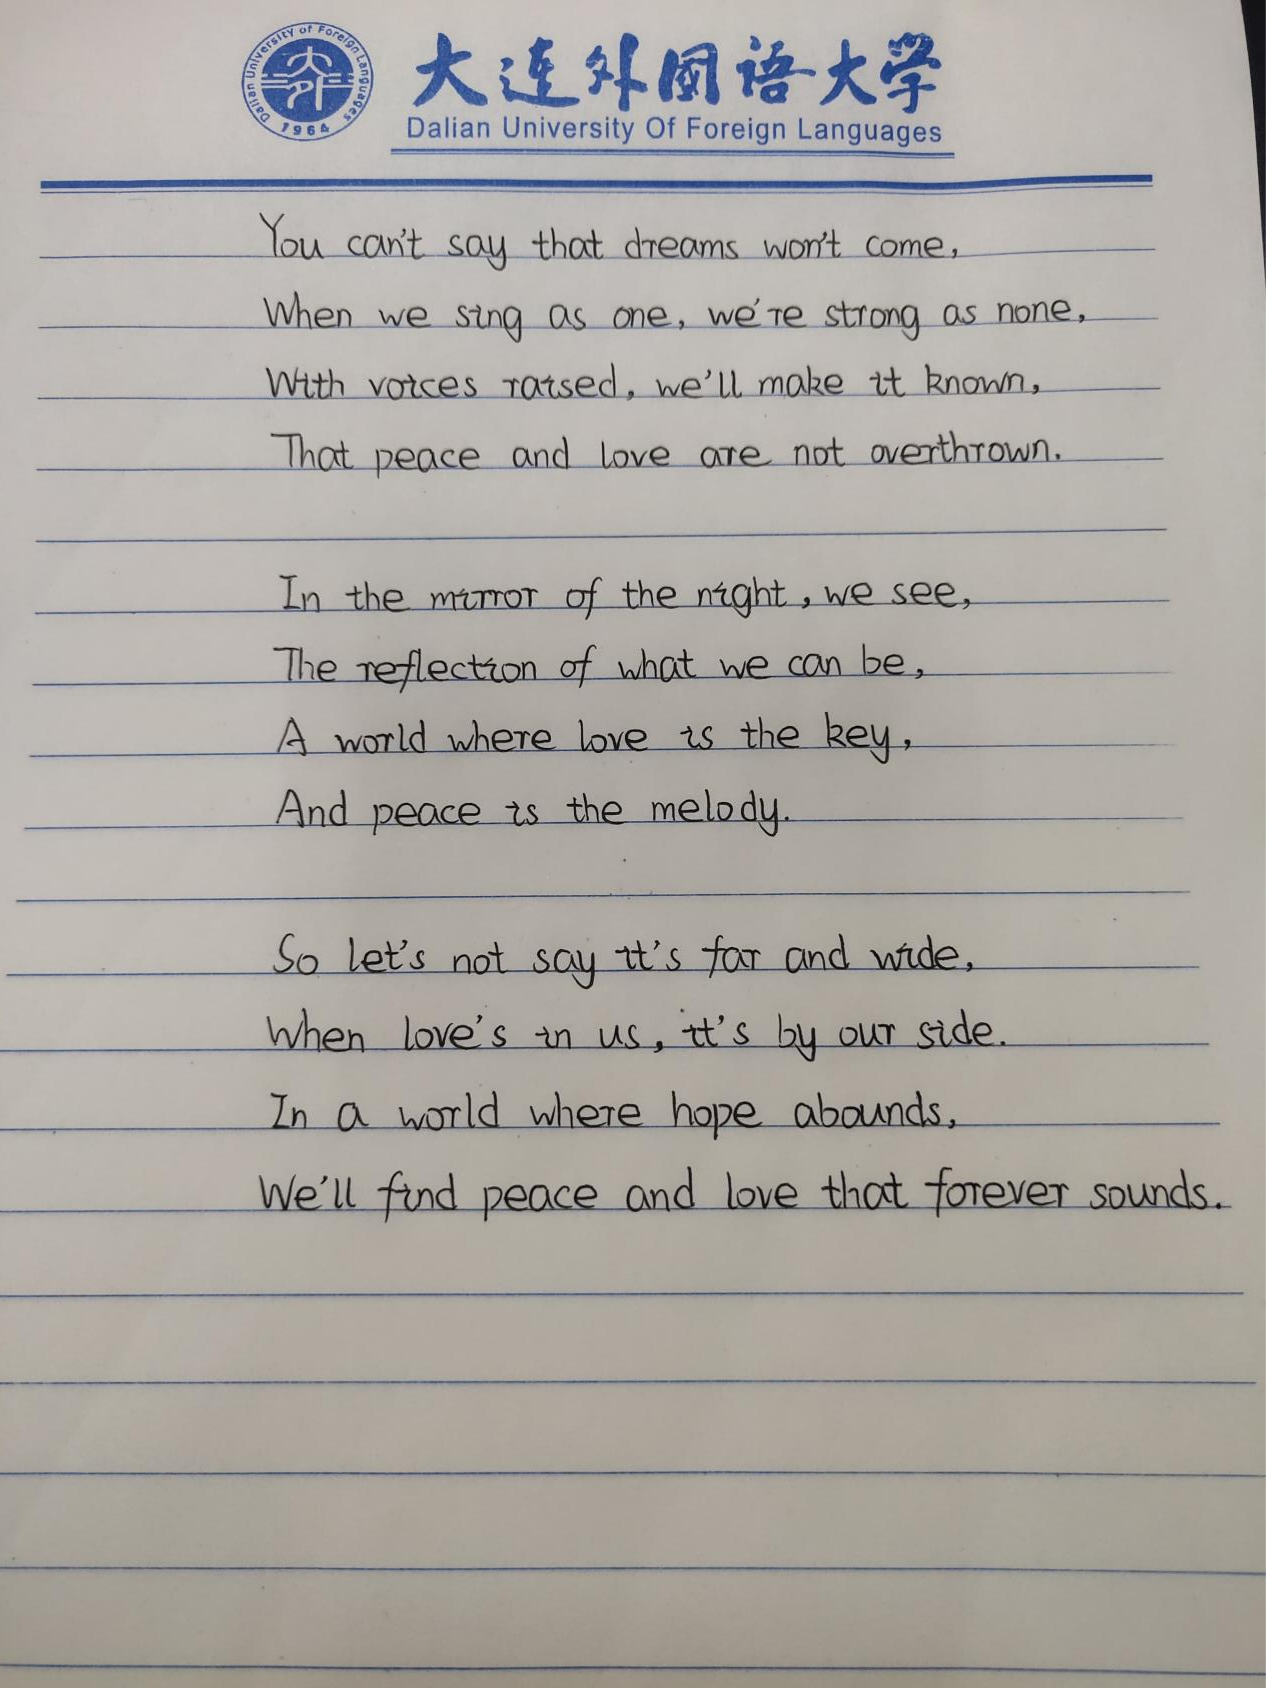 Dalian University of Foreign Languages
1964
大连外国语大学
Dalian University Of Foreign Languages
You can't say that dreams won't come,
When we sing as one, we're strong as none,
With voices raised, we'll make it known,
That peace and love are not overthrown.
In the mirror of the night, we see,
The reflection of what we can be,
A world where love is the key,
And peace is the melody.
So let's not say it's far and wide,
When love's in us, it's by our side.
In a world where hope abounds,
We'll find peace and love that forever sounds.